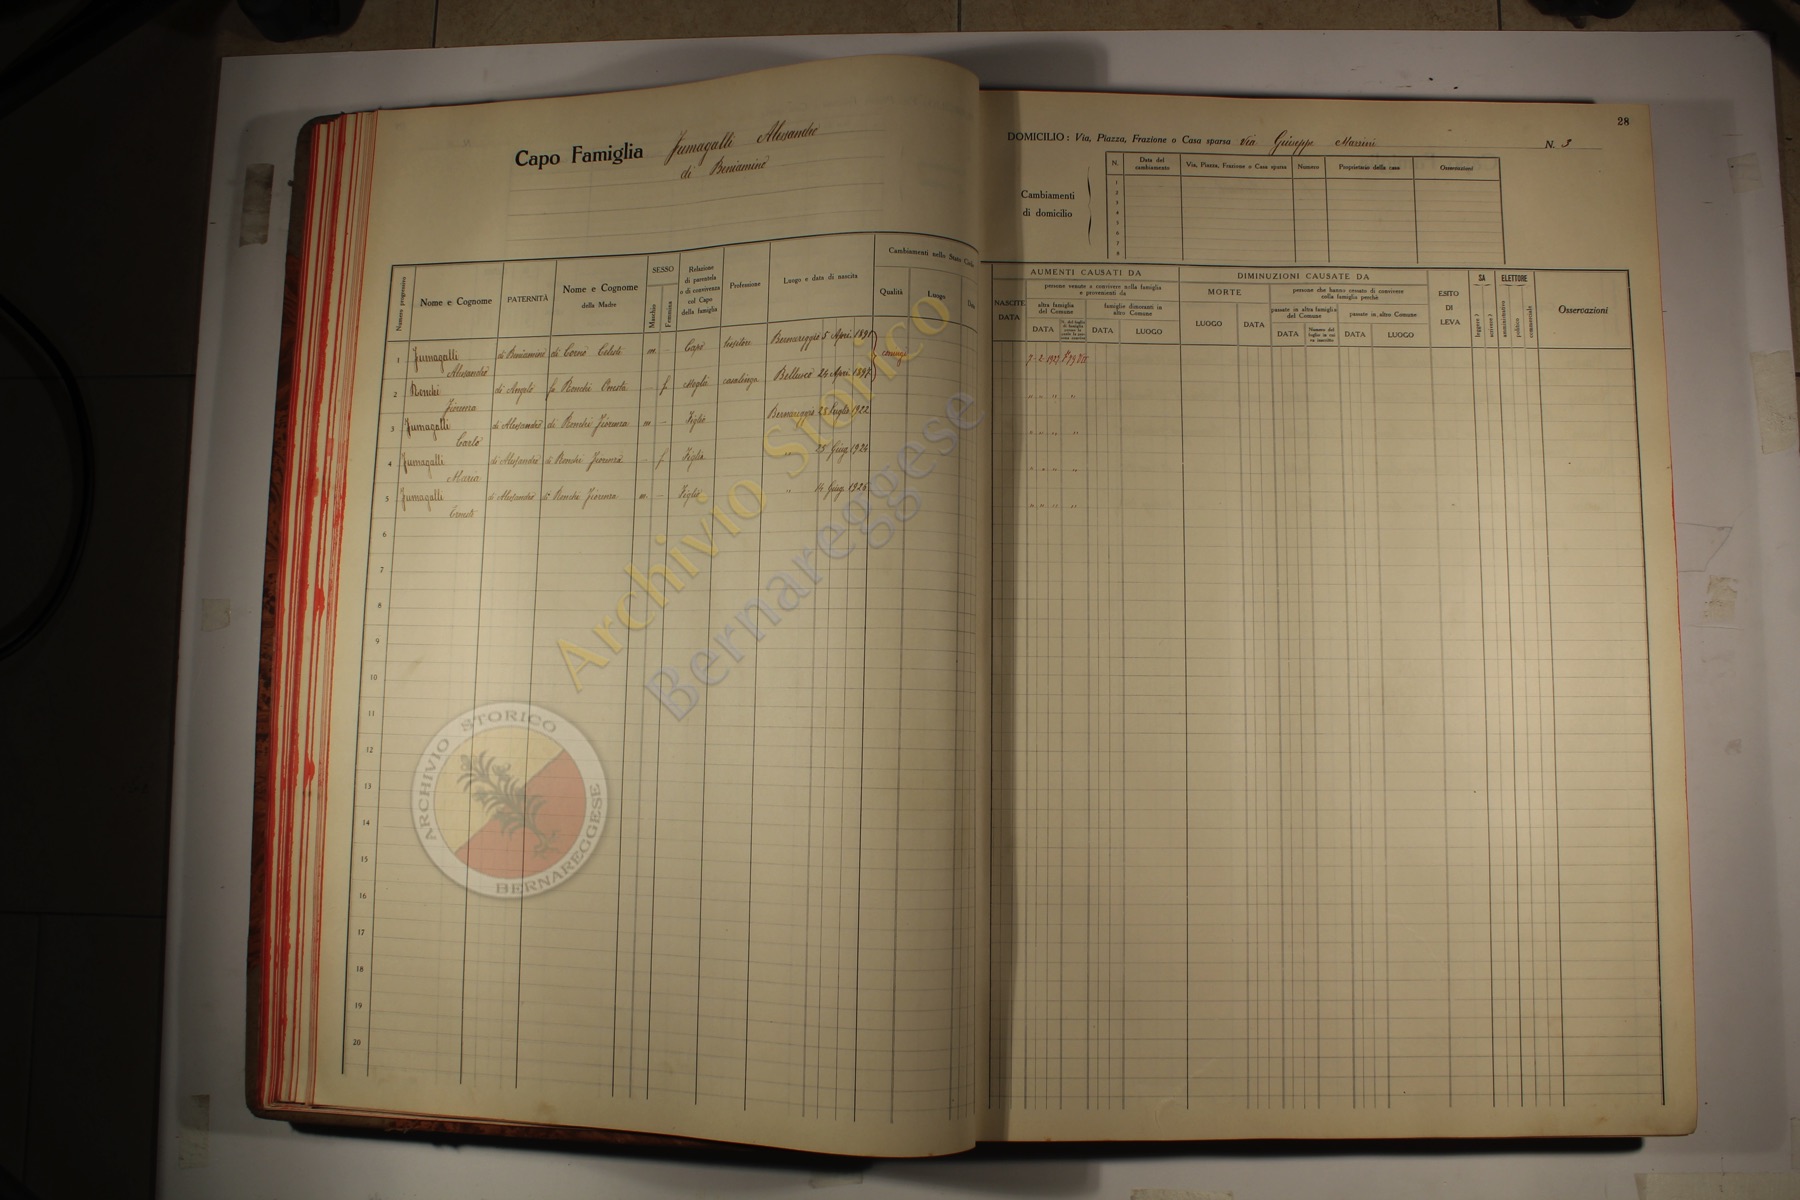 Capo Famiglia Fumagalli Alessandro
di Beniamino
28
DOMICILIO: Via, Piazza, Frazione o Casa sparsa Via Giuseppe Mazzini N. 3
Cambiamenti
di domicilio
N. Data del cambiamento Via, Piazza, Frazione o Casa sparsa Numero Proprietario della casa Osservazioni
1
2
3
4
5
6
7
8
Numero progressivo
Nome e Cognome
PATERNITÀ
Nome e Cognome
della Madre
SESSO
Maschio
Femmina
Relazione
di parentela
o di convivenza
col Capo
della famiglia
Professione
Luogo e data di nascita
Cambiamenti nello Stato Civile
Qualità
Luogo
Data
NASCITE
DATA
AUMENTI CAUSATI DA
persone venute a convivere nella famiglia
e provenienti da
altra famiglia
del Comune
famiglie dimoranti in
altro Comune
DATA
DATA
LUOGO
DIMINUZIONI CAUSATE DA
MORTE
LUOGO
DATA
persone che hanno cessato di convivere
colla famiglia perchè
passate in altra famiglia
del Comune
passate in altro Comune
DATA
DATA
LUOGO
ESITO
DI
LEVA
SA
leggere
scrivere
ELETTORE
amministrativo
politico
commerciale
Osservazioni
1 Fumagalli Alessandro di Beniamino di Cornò m – Capo Bernareggio 5 Apri. 1891
2 Ronchi Fiorenza di Angelo fu Ronchi – f. Moglie casalinga Bellusco 24 Apri. 1897
3 Fumagalli Carlo di Alessandro di Ronchi Fiorenza m – Figlio Bernareggio 28 Luglio 1922
4 Fumagalli Maria di Alessandro di Ronchi Fiorenza – f. Figlia " 25 Giug. 1924
5 Fumagalli Ernesto di Alessandro di Ronchi Fiorenza m. – Figlio " 14 Giug. 1926
6
7
8
9
10
11
12
13
14
15
16
17
18
19
20
Archivio Storico
Bernareggese
ARCHIVIO STORICO
BERNAREGGESE